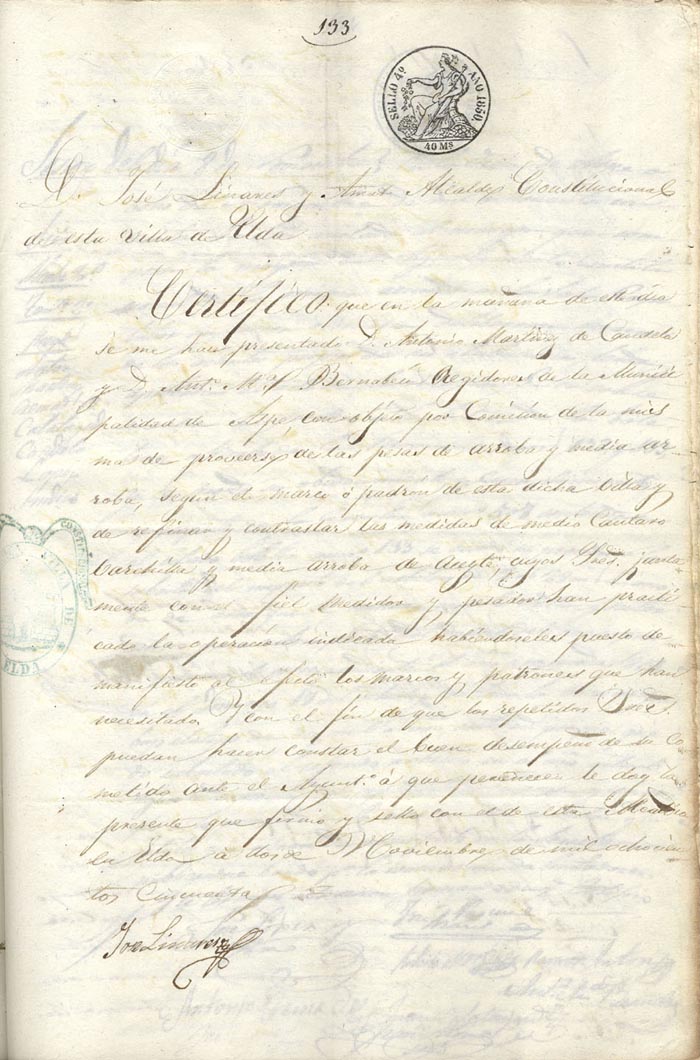 133
SELLO 4º AÑO 1850.
40 Ms
D. José Linares y Amat Alcalde Constitucional
de esta Villa de Elda
Certifico que en la mañana de este dia
se me han presentado D. Antonio Martinz de Candela
y D. Antº Mª Bernabeu Regidores de la Munici
palidad de Aspe con objeto por Comision de la mis
ma de proveerse de las pesas de arroba y media ar-
roba, segun el marco ó padron de esta dicha Villa y
de refinar y contrastar las medidas de medio Cantaro
barchilla y media arroba de Aceyte, cuyos Sres. junta
mente con el fiel medidor y pesador han practi
cado la operacion indicada habiendoseles puesto de
manifiesto al efecto los marcos y patrones que han
necesitado Y con el fin de que los repetidos Sres.
puedan hacer constar el buen desempeño de su co
metido ante el Ayuntº á que pertenecen le doy la
presente que firmo y sello con el de esta
en Elda á dose Noviembre de mil ochocien
tos cincuenta
Jose Linares
VILLA DE ELDA